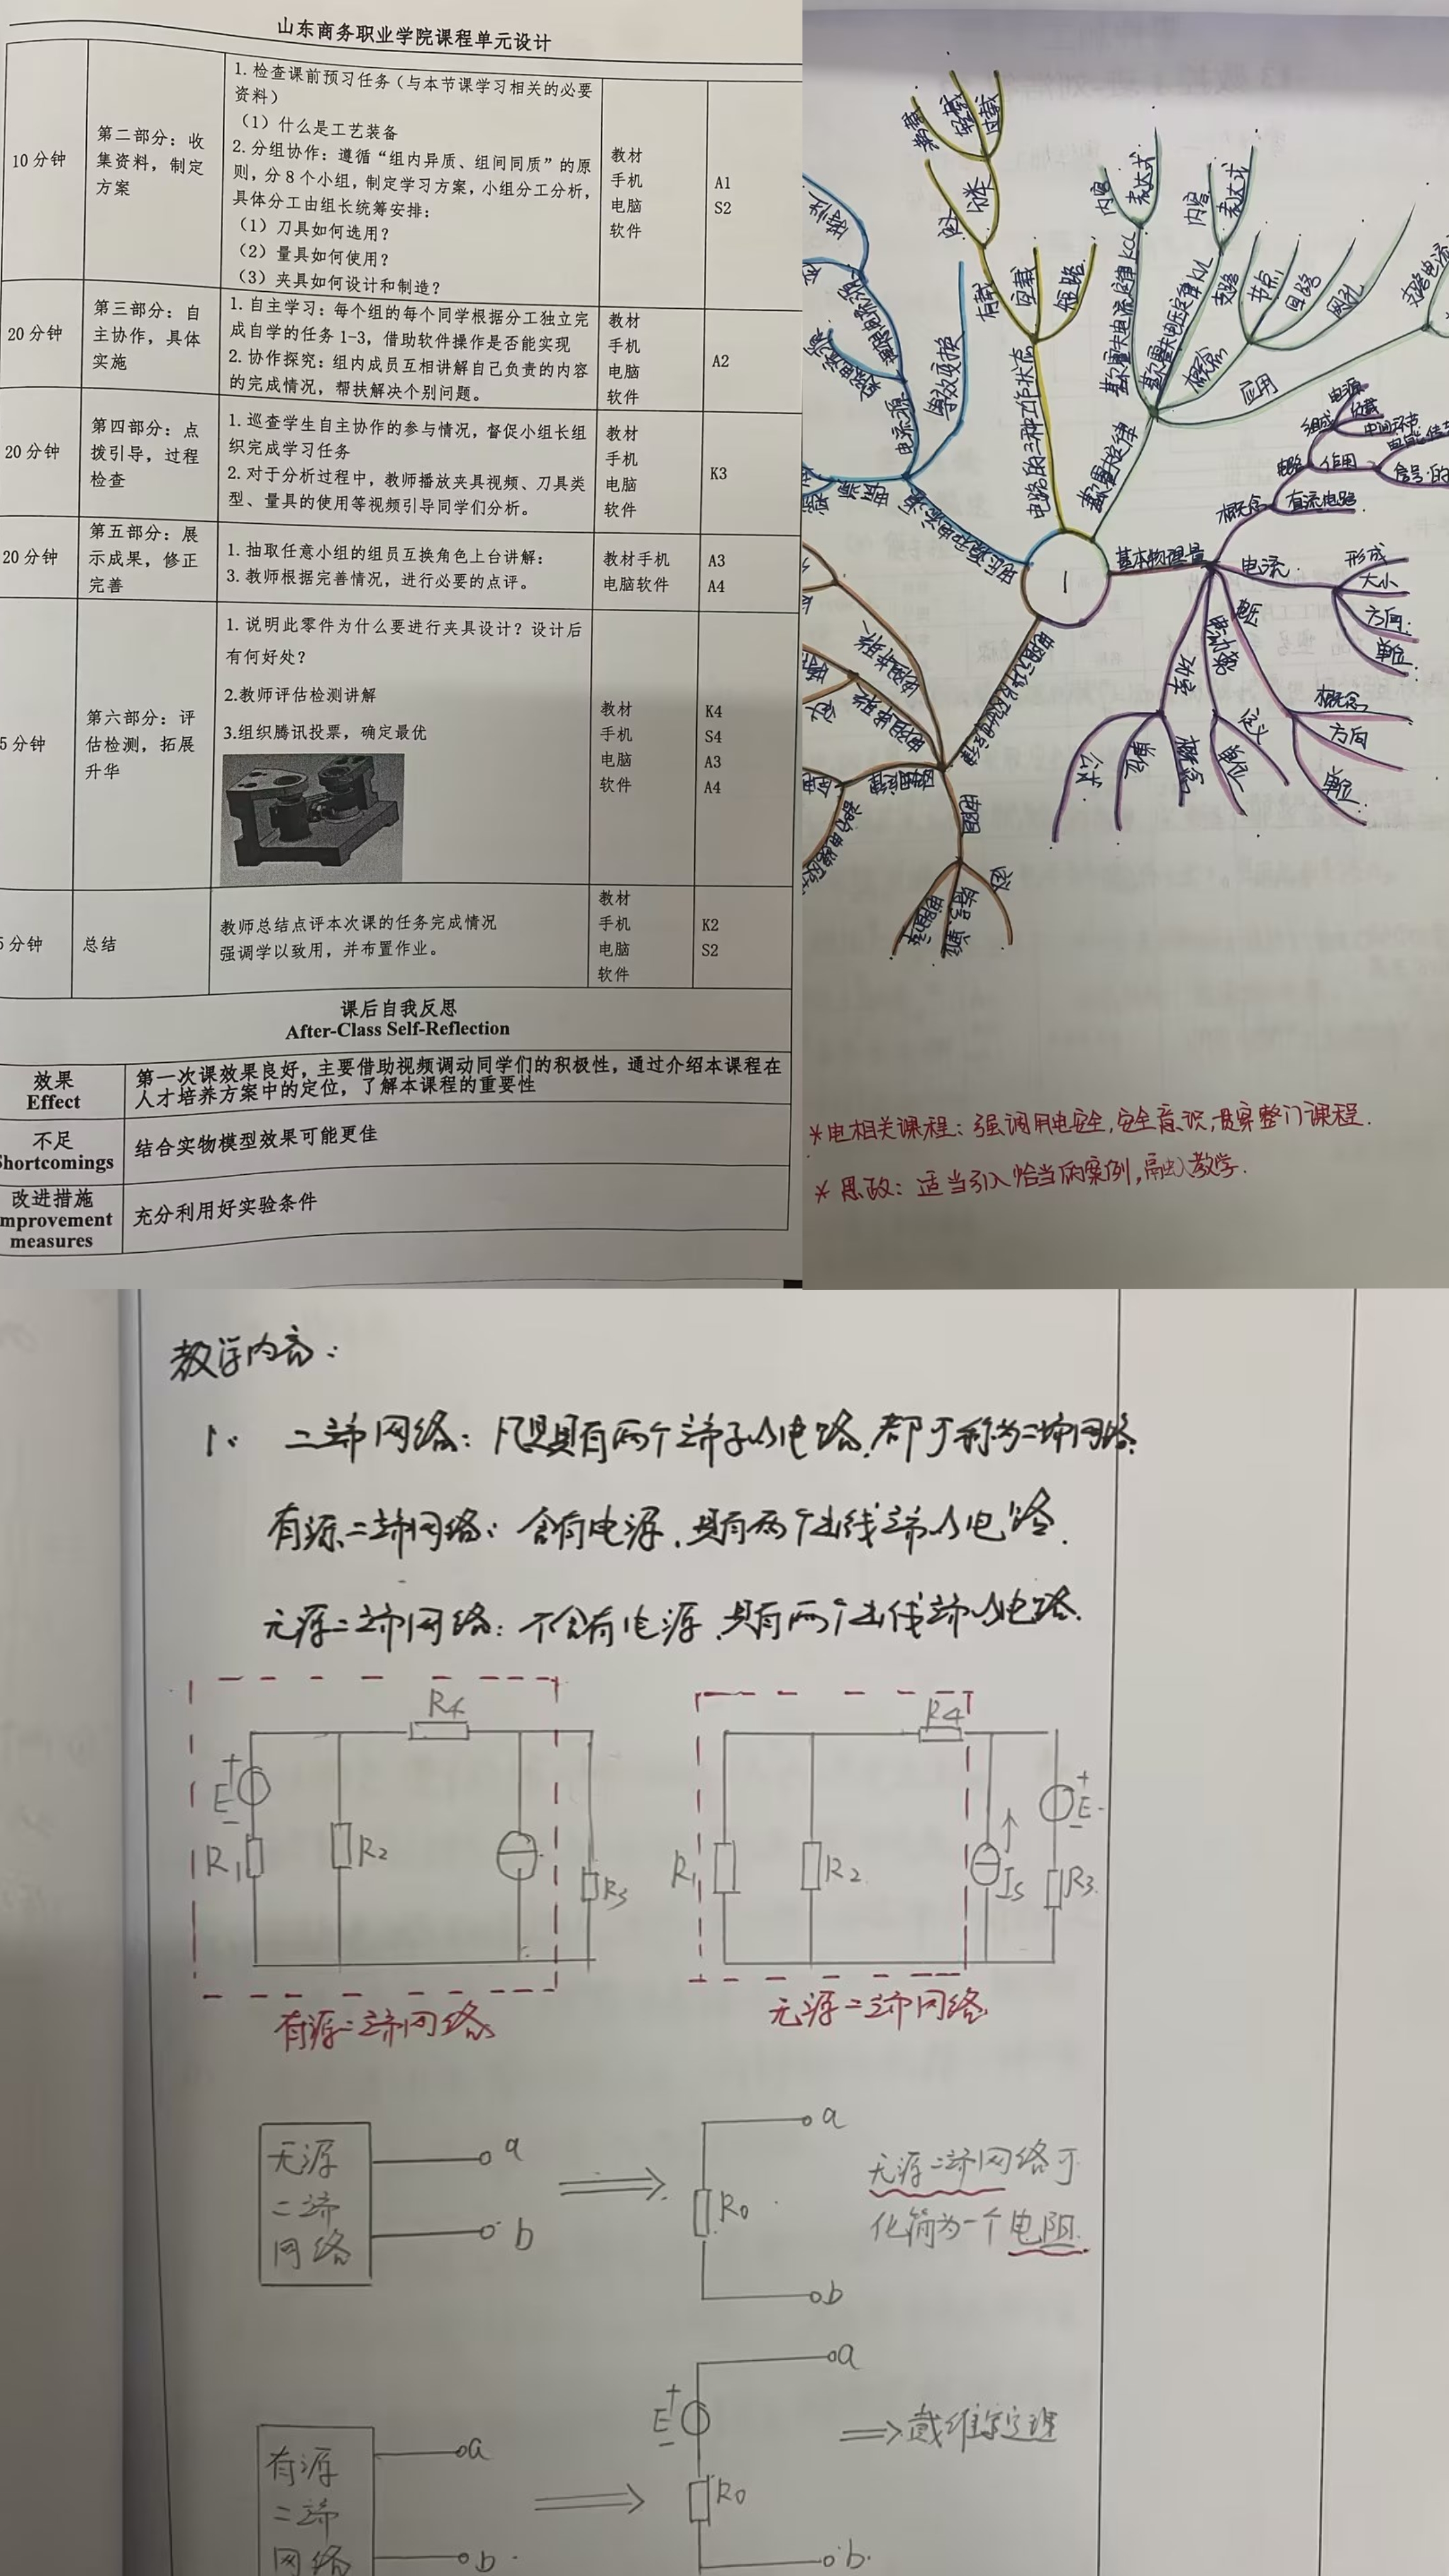 山东商务职业学院课程单元设计
10分钟
第二部分：收
集资料，制定
方案
1. 检查课前预习任务（与本节课学习相关的必要
资料）
（1）什么是工艺装备
2. 分组协作：遵循“组内异质、组间同质”的原
则，分8个小组，制定学习方案，小组分工分析，
具体分工由组长统筹安排：
（1）刀具如何选用？
（2）量具如何使用？
（3）夹具如何设计和制造？
教材
手机
电脑
软件
A1
S2
20分钟
第三部分：自
主协作，具体
实施
1. 自主学习：每个组的每个同学根据分工独立完
成自学的任务1-3，借助软件操作是否能实现
2. 协作探究：组内成员互相讲解自己负责的内容
的完成情况，帮扶解决个别问题。
教材
手机
电脑
软件
A2
20分钟
第四部分：点
拨引导，过程
检查
1. 巡查学生自主协作的参与情况，督促小组长组
织完成学习任务
2. 对于分析过程中，教师播放夹具视频、刀具类
型、量具的使用等视频引导同学们分析。
教材
手机
电脑
软件
K3
20分钟
第五部分：展
示成果，修正
完善
1. 抽取任意小组的组员互换角色上台讲解：
3. 教师根据完善情况，进行必要的点评。
教材手机
电脑软件
A3
A4
5分钟
第六部分：评
估检测，拓展
升华
1. 说明此零件为什么要进行夹具设计？设计后
有何好处？
2.教师评估检测讲解
3.组织腾讯投票，确定最优
教材
手机
电脑
软件
K4
S4
A3
A4
5分钟
总结
教师总结点评本次课的任务完成情况
强调学以致用，并布置作业。
教材
手机
电脑
软件
K2
S2
课后自我反思
After-Class Self-Reflection
效果
Effect
第一次课效果良好，主要借助视频调动同学们的积极性，通过介绍本课程在
人才培养方案中的定位，了解本课程的重要性
不足
Shortcomings
结合实物模型效果可能更佳
改进措施
mprovement
measures
充分利用好实验条件
1
满载
轻载
过载
分类
有载
空载
短路
电路的三种工作状态
内容
表达式
内容
表达式
基尔霍夫电流定律KCL
基尔霍夫电压定律KVL
概念
支路
节点
回路
网孔
应用
支路电流
基尔霍夫定律
等效变换
电流源
基本物理量
概念
直流电路
电路
组成
电源
负载
中间环节
作用
电流
形成
大小
方向
单位
电压
概念
方向
单位
电动势
定义
单位
功率
概念
单位
公式
电阻
*电相关课程：强调用电安全，安全意识，贯穿整门课程.
*思政：适当引入恰当的案例，融入教学.
教学内容：
1. 二端网络：凡是具有两个端子的电路，都可称为二端网络.
有源二端网络：含有电源，具有两个出线端的电路.
无源二端网络：不含有电源，具有两个出线端的电路.
R4
E
+
-
R1
R2
R3
有源二端网络
R4
R1
R2
Is
+
E
-
R3
无源二端网络
无源
二端
网络
a
b
a
R0
b
无源二端网络可
化简为一个电阻.
有源
二端
网络
a
b
a
+
E
-
R0
b
戴维宁定理